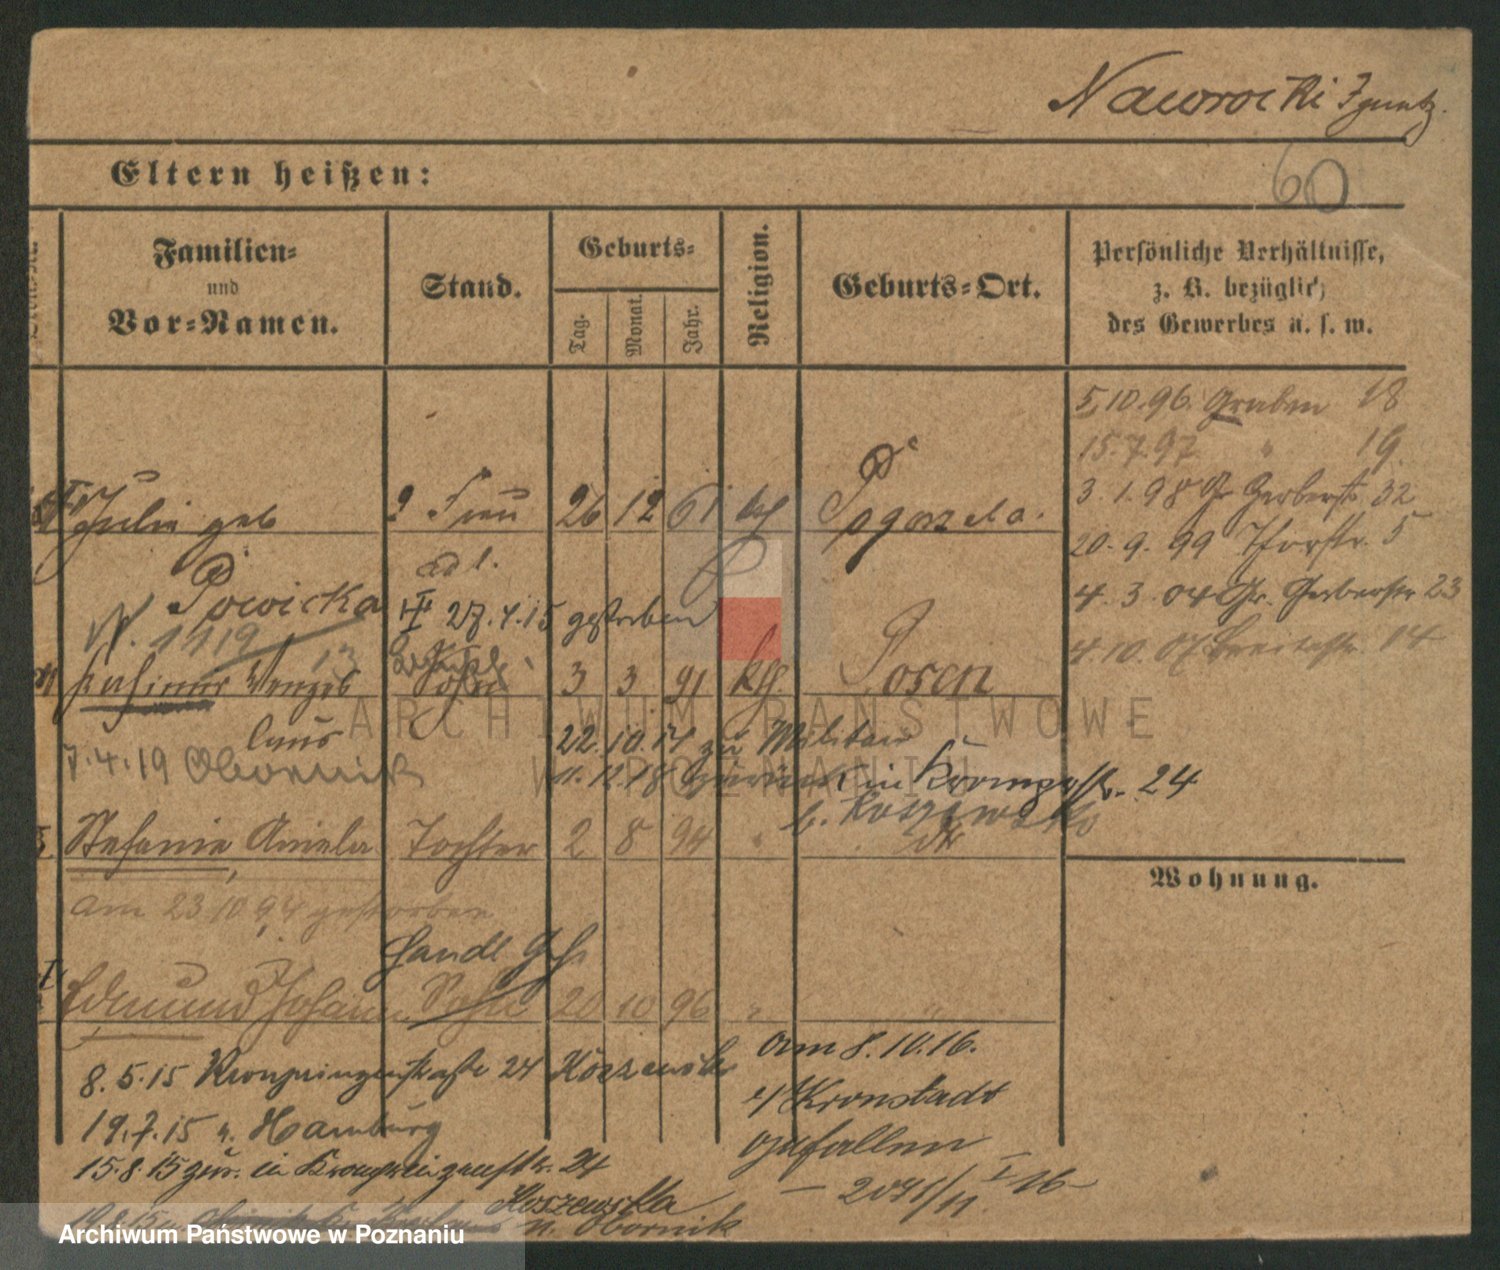 Nawrocki Ignatz.
Eltern heißen:
60
Familien-
und
Vor-Namen.
Stand.
Geburts-
Tag.
Monat.
Jahr.
Religion.
Geburts-Ort.
Persönliche Verhältnisse,
z. B. bezüglich
des Gewerbes u. s. w.
5.10.96. Graben 18
15.7.97 " 19.
3.1.98 Gr. Gerberstr. 32
20.9.99 Thorstr. 5
4.3.04 Gr. Gerberstr 23
4.10.07 Breitestr. 14
Julie geb Frau 26 12 61 kth Pogorzela.
Powicka
27.4.15 gestorben
1919
Kasimir Wenzes Sohn 3 3 91 kth. Posen
laus
22.10.14 zu Militär
7.4.19 Obornik
11.12.18 zurück in Kronprzstr. 24
b. Koszewska
Stefanie, Aniela Tochter 2 8 94 "
Wohnung.
am 23 10 94 gestorben
Handl. Geh.
Edmund Johann Sohn 20 10 96 " "
am 8.10.16.
8.5.15 Kronprinzenstraße 24 Koszewska
b/Kronstadt
19.7.15 n. Hamburg
gefallen
15.8.15 zur. in Kronprinzenstr. 24
– 2071/11 16 –
Koszewska
n. Obornik
ARCHIWUM PAŃSTWOWE
W POZNANIU
Archiwum Państwowe w Poznaniu